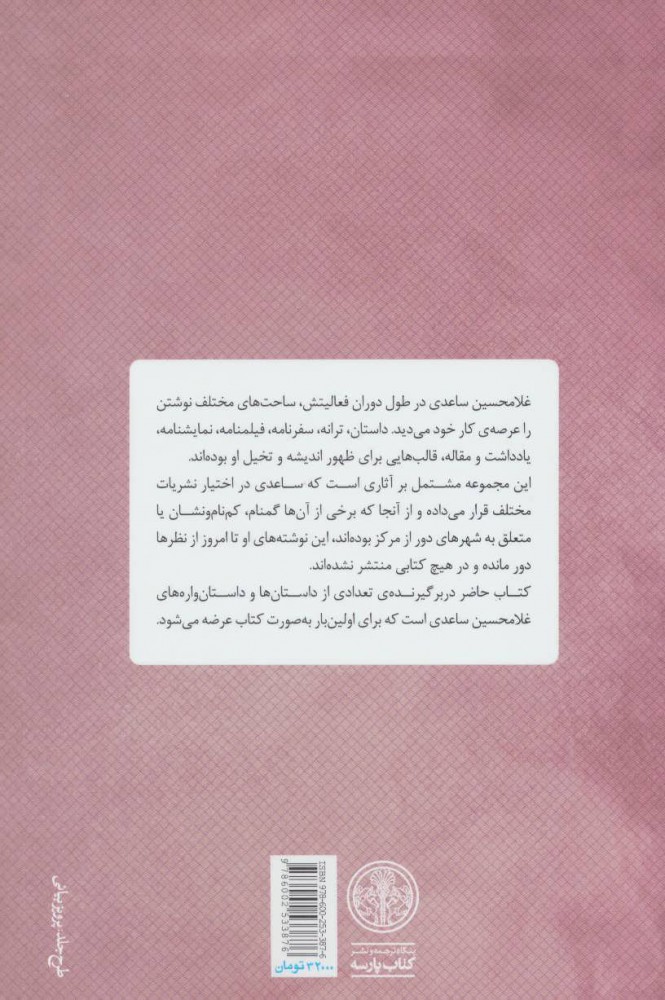 غلامحسین ساعدی در طول دوران فعالیتش، ساحت‌های مختلف نوشتن
را عرصه‌ی کار خود می‌دید. داستان، ترانه، سفرنامه، فیلمنامه، نمایشنامه،
یادداشت و مقاله، قالب‌هایی برای ظهور اندیشه و تخیل او بوده‌اند.
این مجموعه مشتمل بر آثاری است که ساعدی در اختیار نشریات
مختلف قرار می‌داده و از آنجا که برخی از آن‌ها گمنام، کم‌نام‌ونشان یا
متعلق به شهرهای دور از مرکز بوده‌اند، این نوشته‌های او تا امروز از نظرها
دور مانده و در هیچ کتابی منتشر نشده‌اند.
کتاب حاضر دربرگیرنده‌ی تعدادی از داستان‌ها و داستان‌واره‌های
غلامحسین ساعدی است که برای اولین‌بار به‌صورت کتاب عرضه می‌شود.
بنگاه ترجمه و نشر
کتاب پارسه
ISBN 978-600-253-387-6
9786002533876
۳۲۰۰۰ تومان
طرح جلد: پرویز بیانی